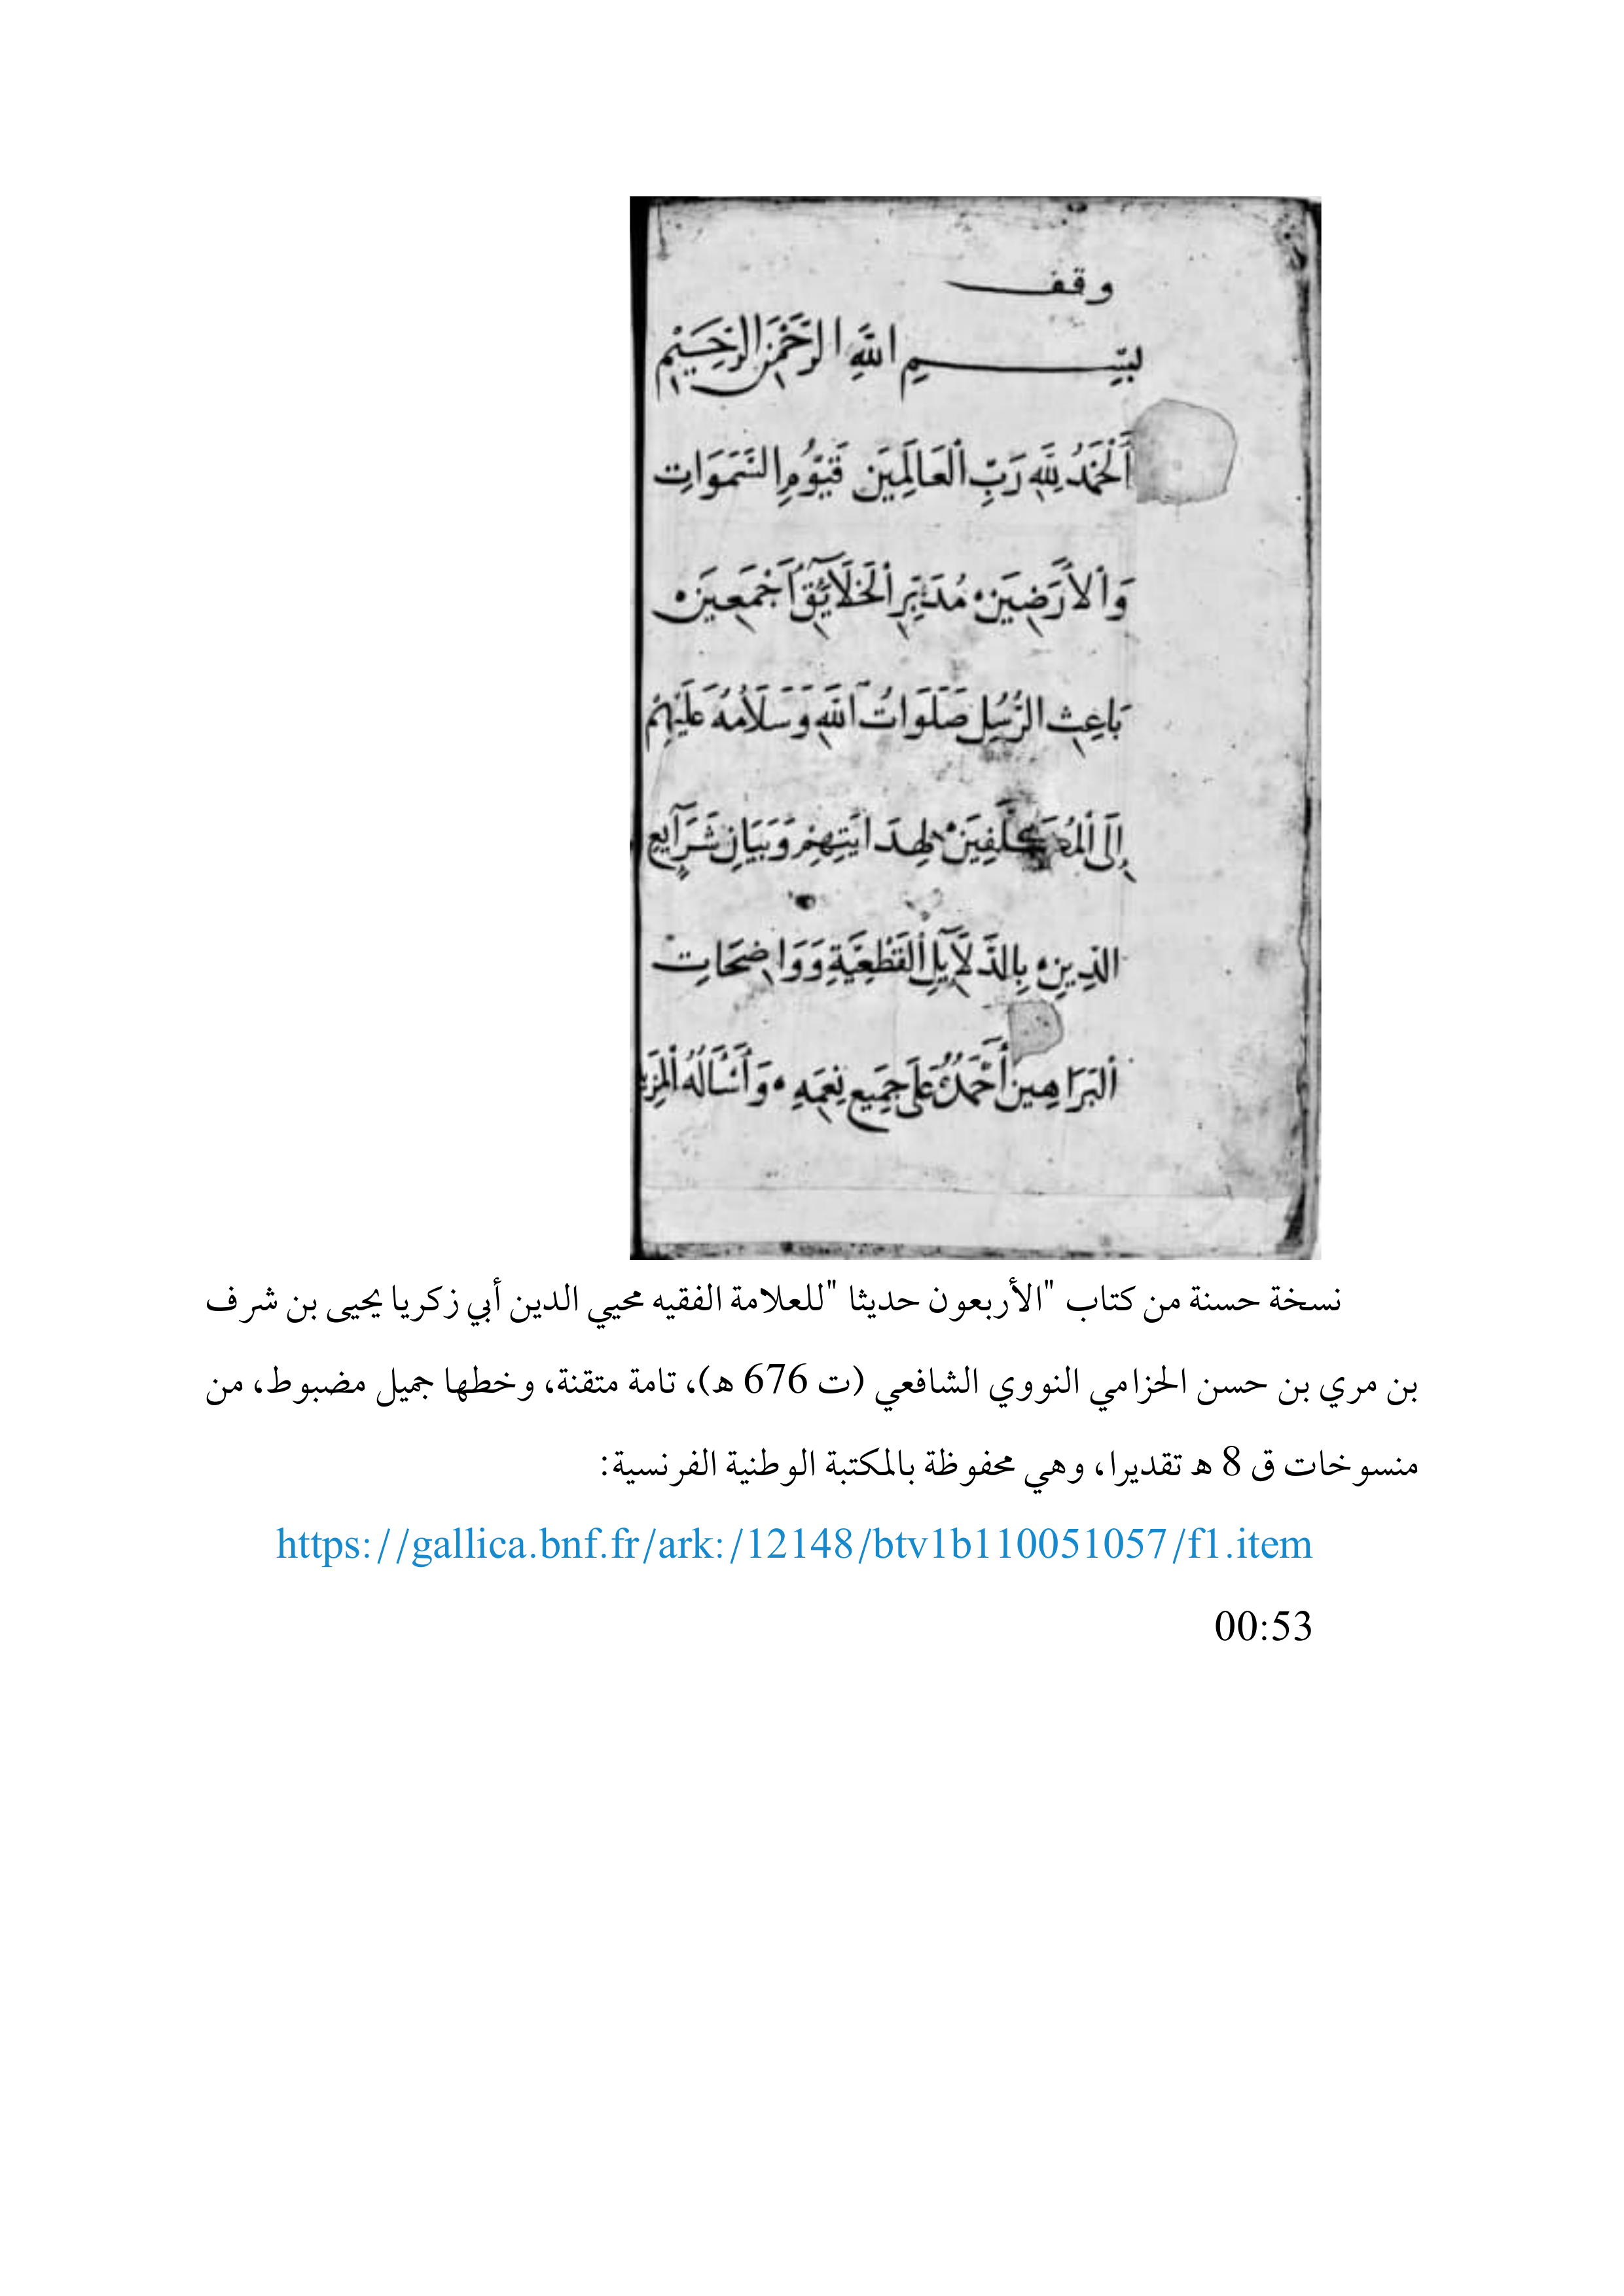 وقف
بِسْمِ اللَّهِ الرَّحْمَنِ الرَّحِيْمِ
أَلْحَمْدُ لِلَّهِ رَبِّ الْعَالَمِيَن قَيُّوْمِ السَّمَوَاتِ
وَالأَرَضِيَن مُدَبِّرِ الْخَلَآئِقِ أَجْمَعِيَن
بَاعِثِ الرُّسُلِ صَلَوَاتُ اللَّهِ وَسَلَامُهُ عَلَيْهِمْ
إِلَى الْمُكَلَّفِيَن لِهِدَايَتِهِمْ وَبَيَانِ شَرَآيِعِ
الدِّيِنِ بِالدَّلَآيِلِ الْقَطْعِيَّةِ وَوَاضِحَاتِ
الْبَرَاهِيِن أَحْمَدُهُ عَلَى جَمِيعِ نِعَمِهِ وَأَسْأَلُهُ الْمَزِيد
نسخة حسنة من كتاب "الأربعون حديثا "للعلامة الفقيه محيي الدين أبي زكريا يحيى بن شرف
بن مري بن حسن الحزامي النووي الشافعي (ت 676 هـ)، تامة متقنة، وخطها جميل مضبوط، من
منسوخات ق 8 هـ تقديرا، وهي محفوظة بالمكتبة الوطنية الفرنسية:
https://gallica.bnf.fr/ark:/12148/btv1b110051057/f1.item
00:53